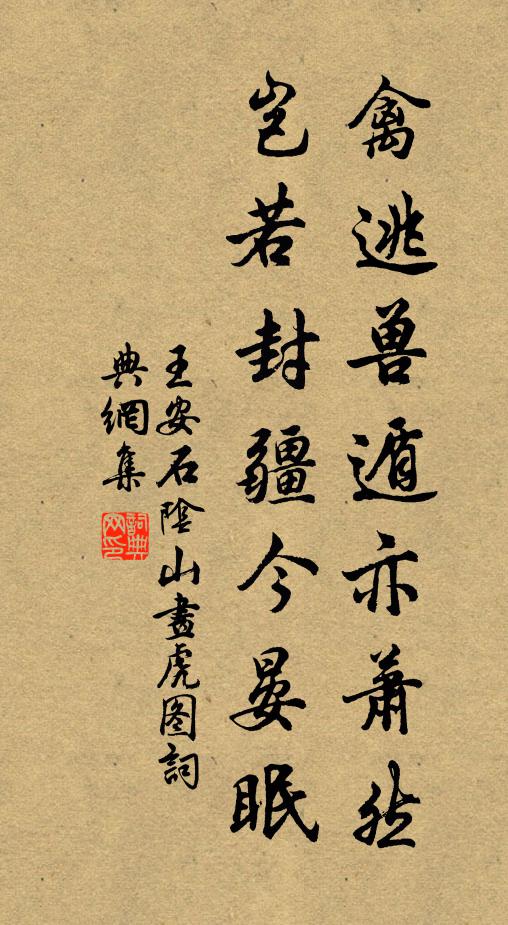 禽逃兽遁亦萧然
岂若封疆今晏眠
王安石陰山畫虎图詞
典網集
詞典
网印